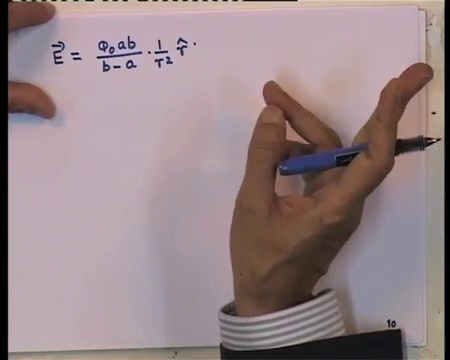 E⃗ = Φ₀ab / (b - a) · 1/r² r̂ ·
10